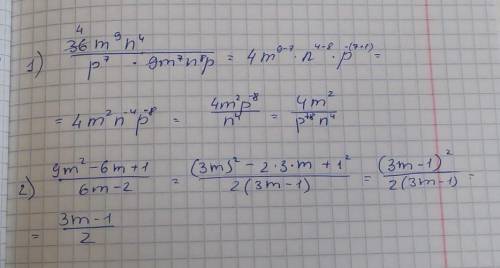 1) \frac{\overset{4}{36} m^9 n^4}{p^7 \cdot 9m^7 n^8 p} = 4m^{9-7} \cdot n^{4-8} \cdot p^{-(7+1)} =
= 4m^2 n^{-4} p^{-8} = \frac{4m^2 p^{-8}}{n^4} = \frac{4m^2}{p^{+8} n^4}
2) \frac{9m^2 - 6m + 1}{6m - 2} = \frac{(3m)^2 - 2 \cdot 3 \cdot m + 1^2}{2(3m-1)} = \frac{(3m-1)^2}{2(3m-1)} =
= \frac{3m-1}{2}